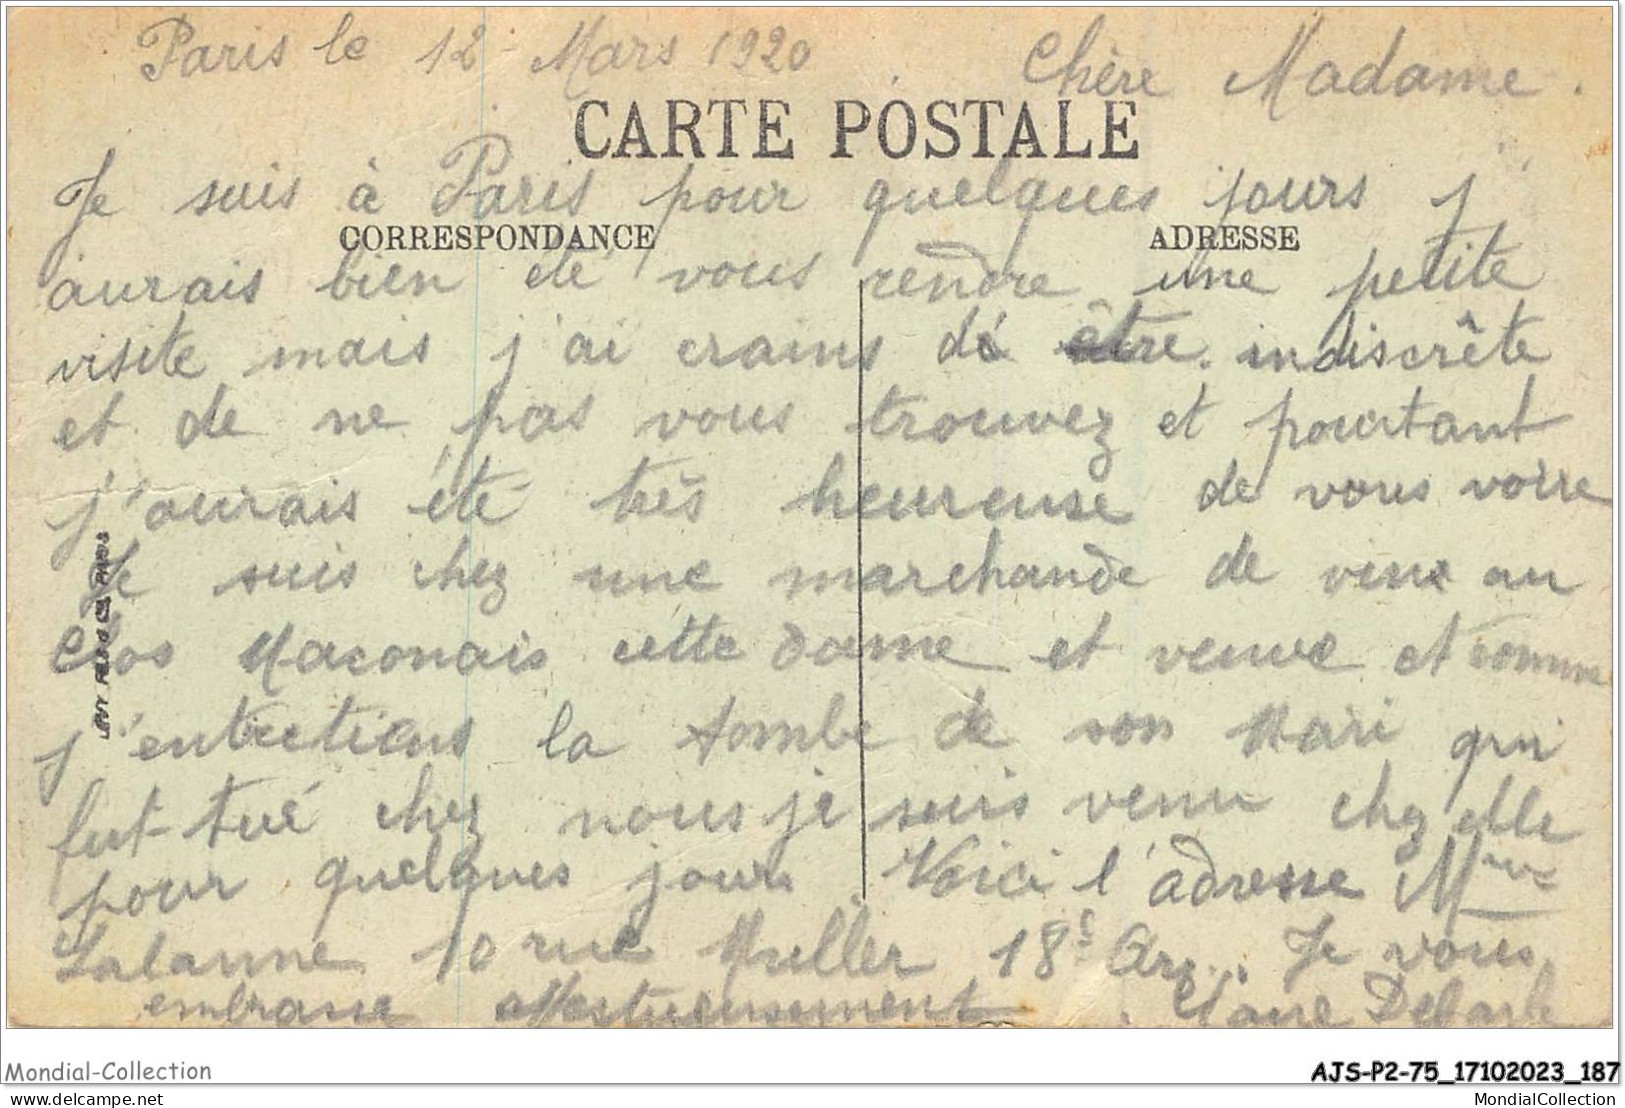 Paris le 12 Mars 1920 Chère Madame.
CARTE POSTALE
Je suis à Paris pour quelques jours j'
CORRESPONDANCE ADRESSE
aurais bien été vous rendre une petite
visite mais j'ai crains dê être indiscrête
et de ne pas vous trouvez et pourtant
j'aurais été très heureuse de vous voire
Je suis chez une marchande de vins au
Clos Maconais cette dame et veuve et comme
j'entretiens la tombe de son Mari qui
fut tué chez nous je suis venu chez elle
pour quelques jours Voici l'adresse Mme
Lalanne 10 rue Muller 18e Arr. Je vous
embrasse affectueusement. Claire
LEVY FILS & CIE PARIS
Mondial-Collection AJS-P2-75_17102023_187
www.delcampe.net MondialCollection